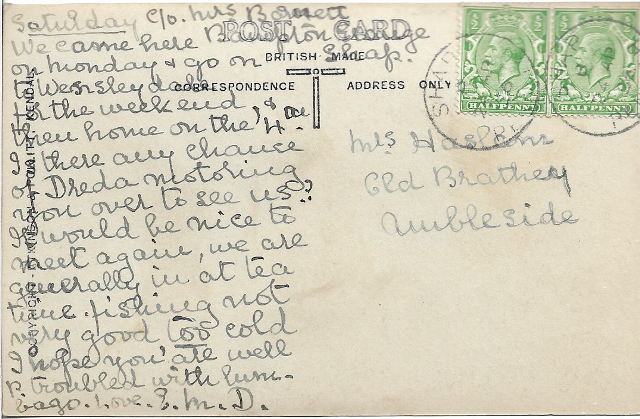 Saturday c/o. Mrs Barnett
POST CARD
We came here Bampton Grange
on monday & go on Shap.
BRITISH MADE
to Wensleydale
CORRESPONDENCE
ADDRESS ONLY
for the weekend &
then home on the 4th
Is there any chance
of Dreda motoring
you over to see us?
It would be nice to
meet again, we are
generally in at tea
time. fishing not
very good too cold
I hope you are well
P. troubled with lum-
bago. Love. E.M.D.
Mrs Haslam
Old Brathay
Ambleside
HALFPENNY
HALFPENNY
SHAP
COPYRIGHT
KENDAL